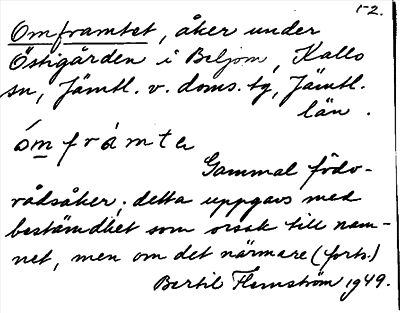 1-2.
Omframtet, åker under
Östigården i Beljom, Kallo
sn, Jämtl. v. doms. tg, Jämtl.
län.
ómfrámtɐ
Gammal födo-
rådsåker; detta uppgavs med
bestämdhet som orsak till nam-
net, men om det närmare (forts.)
Bertil Flemström 1949.